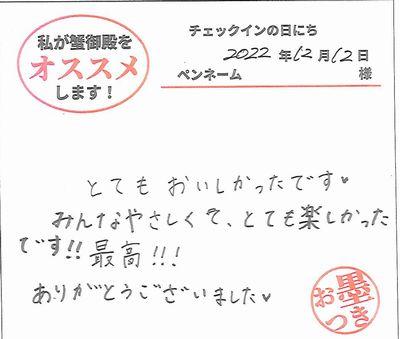 私が蟹御殿を
オススメ
します！
チェックインの日にち
2022 年 12 月 12 日
ペンネーム 様
とてもおいしかったです♥
みんなやさしくて、とても楽しかった
です!! 最高!!!
ありがとうございました♥
お墨つき